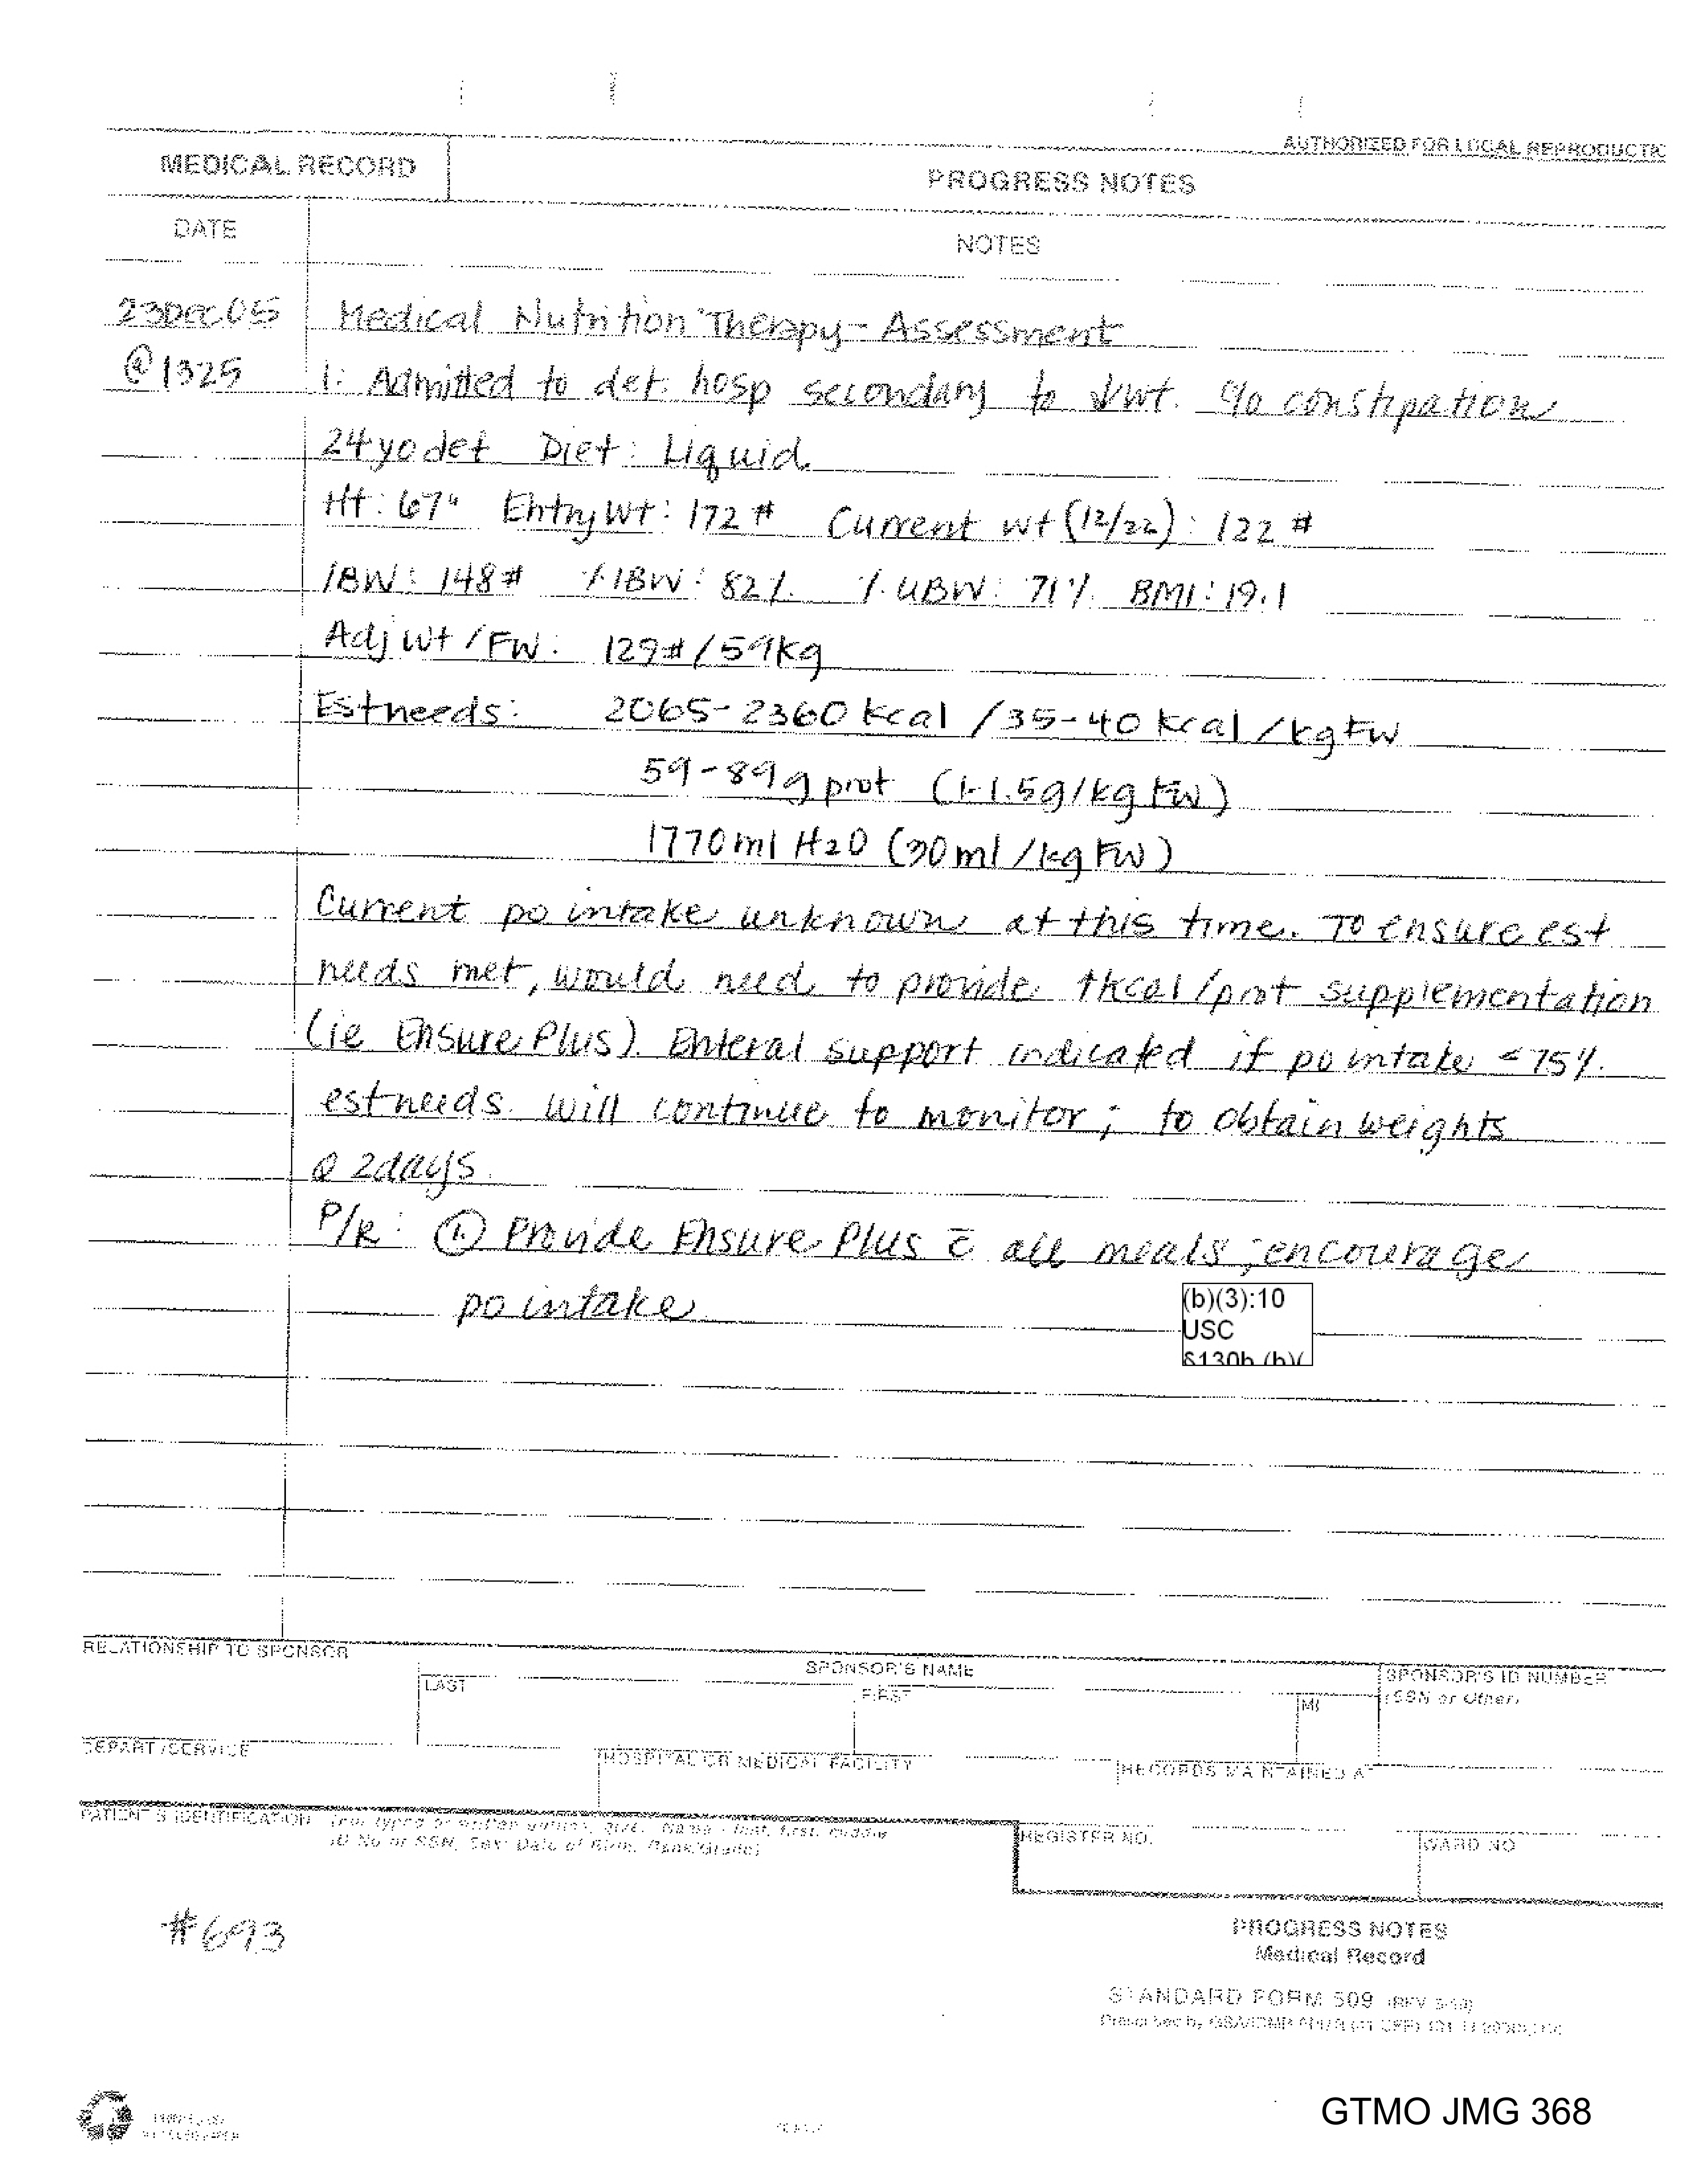 AUTHORIZED FOR LOCAL REPRODUCTIO
MEDICAL RECORD
PROGRESS NOTES
DATE
NOTES
23DEC05 Medical Nutrition Therapy - Assessment
@1325 1: Admitted to det. hosp secondary to ↓wt. c/o constipation
24yo det Diet: Liquid
Ht: 67" Entry Wt: 172# Current wt (12/22): 122#
IBW: 148# %IBW: 82% % UBW: 71% BMI: 19.1
Adj Wt / FW: 129#/59kg
Est needs: 2065-2360 kcal /35-40 kcal/kg FW
59-89g prot (1-1.5g/kg FW)
1770ml H2O (30ml/kg FW)
Current po intake unknown at this time. To ensure est
needs met, would need to provide ↑kcal/prot supplementation
(ie Ensure Plus). Enteral support indicated if po intake ≤75%
est needs. Will continue to monitor; to obtain weights
Q 2days.
P/R: ① Provide Ensure Plus c̄ all meals; encourage
po intake
(b)(3):10
USC
§130b,(b)(
RELATIONSHIP TO SPONSOR
SPONSOR'S NAME
SPONSOR'S ID NUMBER
LAST
FIRST
MI
(SSN or Other)
DEPART./SERVICE
HOSPITAL OR MEDICAL FACILITY
RECORDS MAINTAINED AT
PATIENT'S IDENTIFICATION (For typed or written entries, give: Name - last, first, middle
ID No or SSN; Sex; Date of Birth; Rank/Grade)
REGISTER NO.
WARD NO
#693
PROGRESS NOTES
Medical Record
STANDARD FORM 509
Prescribed by
GTMO JMG 368